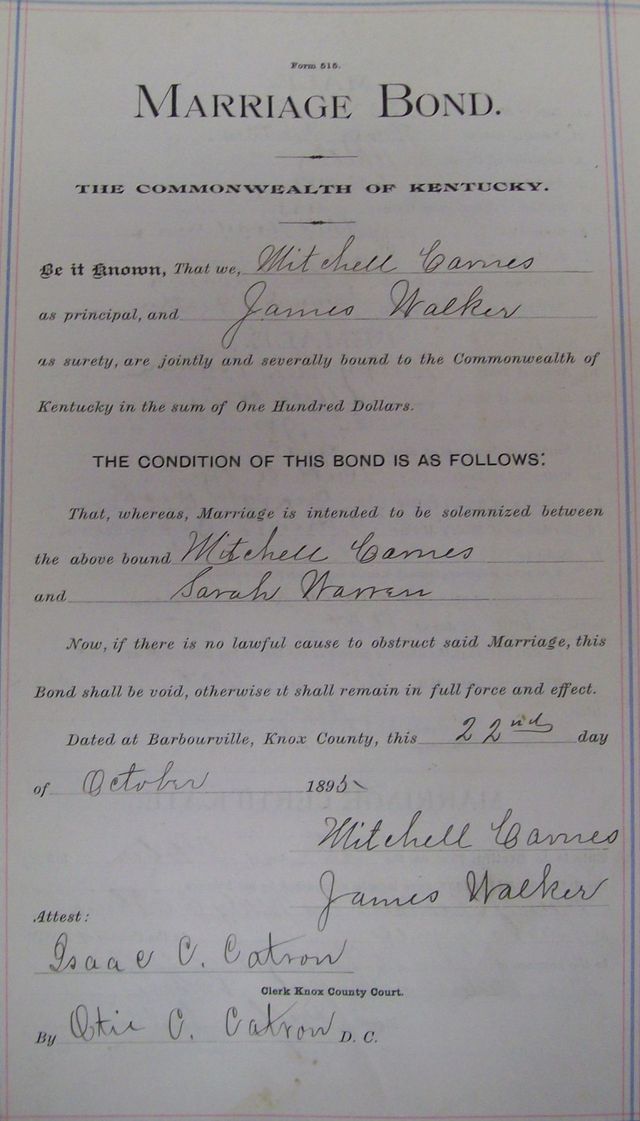 Form 515.
MARRIAGE BOND.
THE COMMONWEALTH OF KENTUCKY.
Be it Known, That we, Mitchell Carnes
as principal, and James Walker
as surety, are jointly and severally bound to the Commonwealth of
Kentucky in the sum of One Hundred Dollars.
THE CONDITION OF THIS BOND IS AS FOLLOWS:
That, whereas, Marriage is intended to be solemnized between
the above bound Mitchell Carnes
and Sarah Warren
Now, if there is no lawful cause to obstruct said Marriage, this
Bond shall be void, otherwise it shall remain in full force and effect.
Dated at Barbourville, Knox County, this 22nd day
of October 1895
Mitchell Carnes
James Walker
Attest:
Isaac C. Catron
Clerk Knox County Court.
By Otie C. Catron D. C.